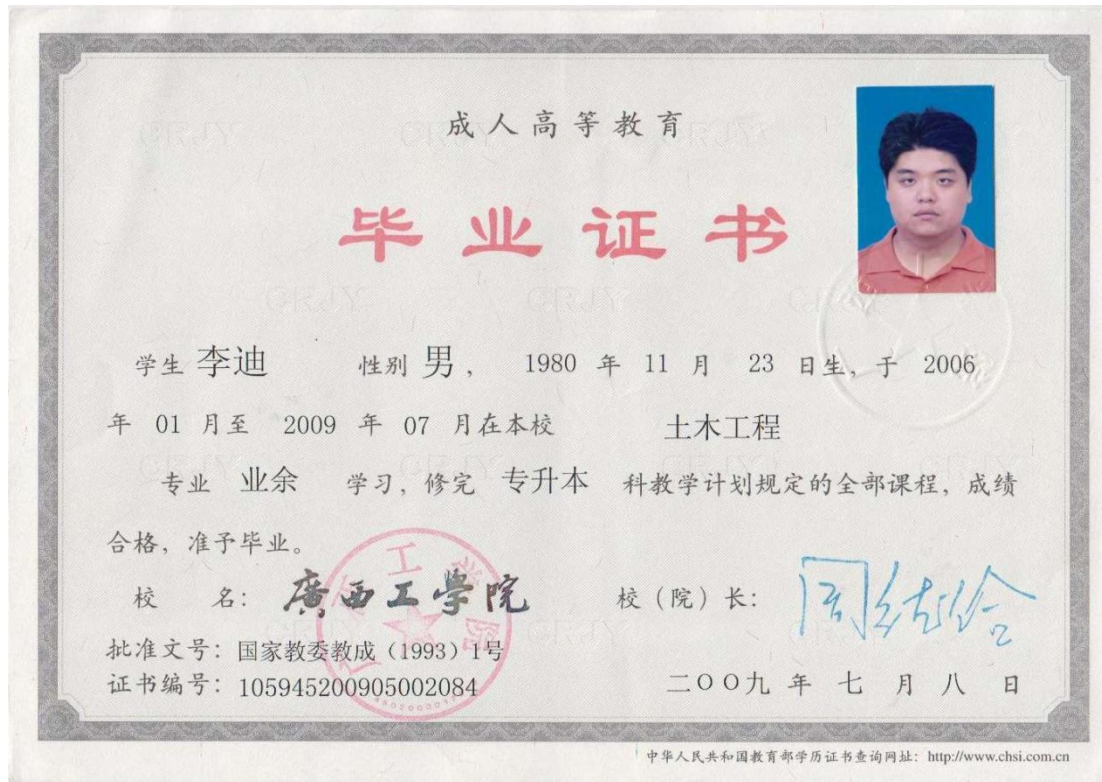 成人高等教育
毕业证书
学生 李迪 性别 男， 1980 年 11 月 23 日生，于 2006
年 01 月至 2009 年 07 月在本校 土木工程
专业 业余 学习，修完 专升本 科教学计划规定的全部课程，成绩
合格，准予毕业。
校 名：廣西工学院 校（院）长：
批准文号：国家教委教成（1993）1号
证书编号：105945200905002084 二〇〇九 年 七 月 八 日
中华人民共和国教育部学历证书查询网址：http://www.chsi.com.cn